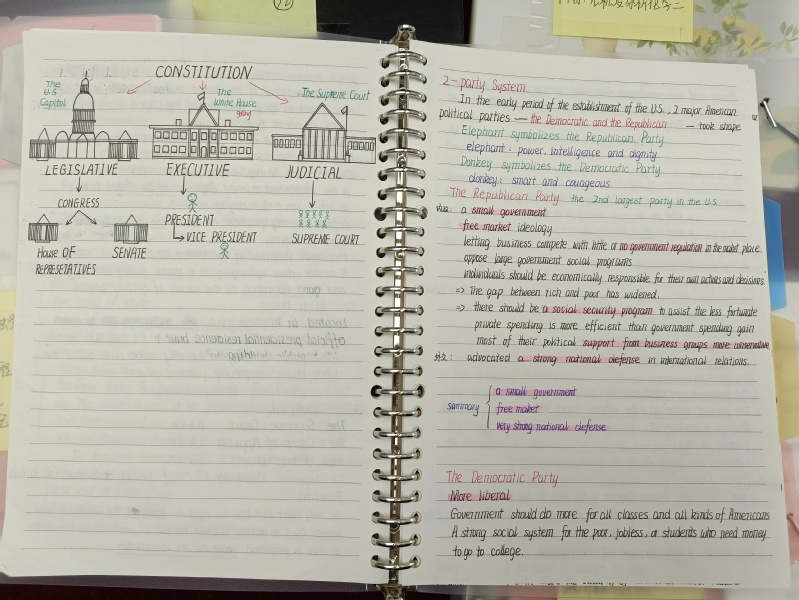 CONSTITUTION
The U.S Capitol
The White House
gray
The Supreme Court
LEGISLATIVE
EXECUTIVE
JUDICIAL
CONGRESS
PRESIDENT
VICE PRESIDENT
SUPREME COURT
House OF REPRESETATIVES
SENATE
2-party System
In the early period of the establishment of the U.S., 2 major American
political parties — the Democratic and the Republican — took shape
Elephant symbolizes the Republican Party
elephant: power, intelligence and dignity.
Donkey symbolizes the Democratic Party
donkey: smart and couageous
The Republican Party the 2nd largest party in the U.S.
a small government
free market ideology
letting business compete with little or no government regulation in the market place.
oppose large government social programs
individuals should be economically responsible for their own actions and decisions.
=> The gap between rich and poor has widened.
=> there should be a social security program to assist the less fortunate
private spending is more efficient than government spending gain
most of their political support from business groups more conservative
外交: advocated a strong national defense in international relations.
summary
a small government
free market
very strong national defense
The Democratic Party
More liberal
Government should do more for all classes and all kinds of Americans
A strong social system for the poor, jobless, or students who need money
to go to college.